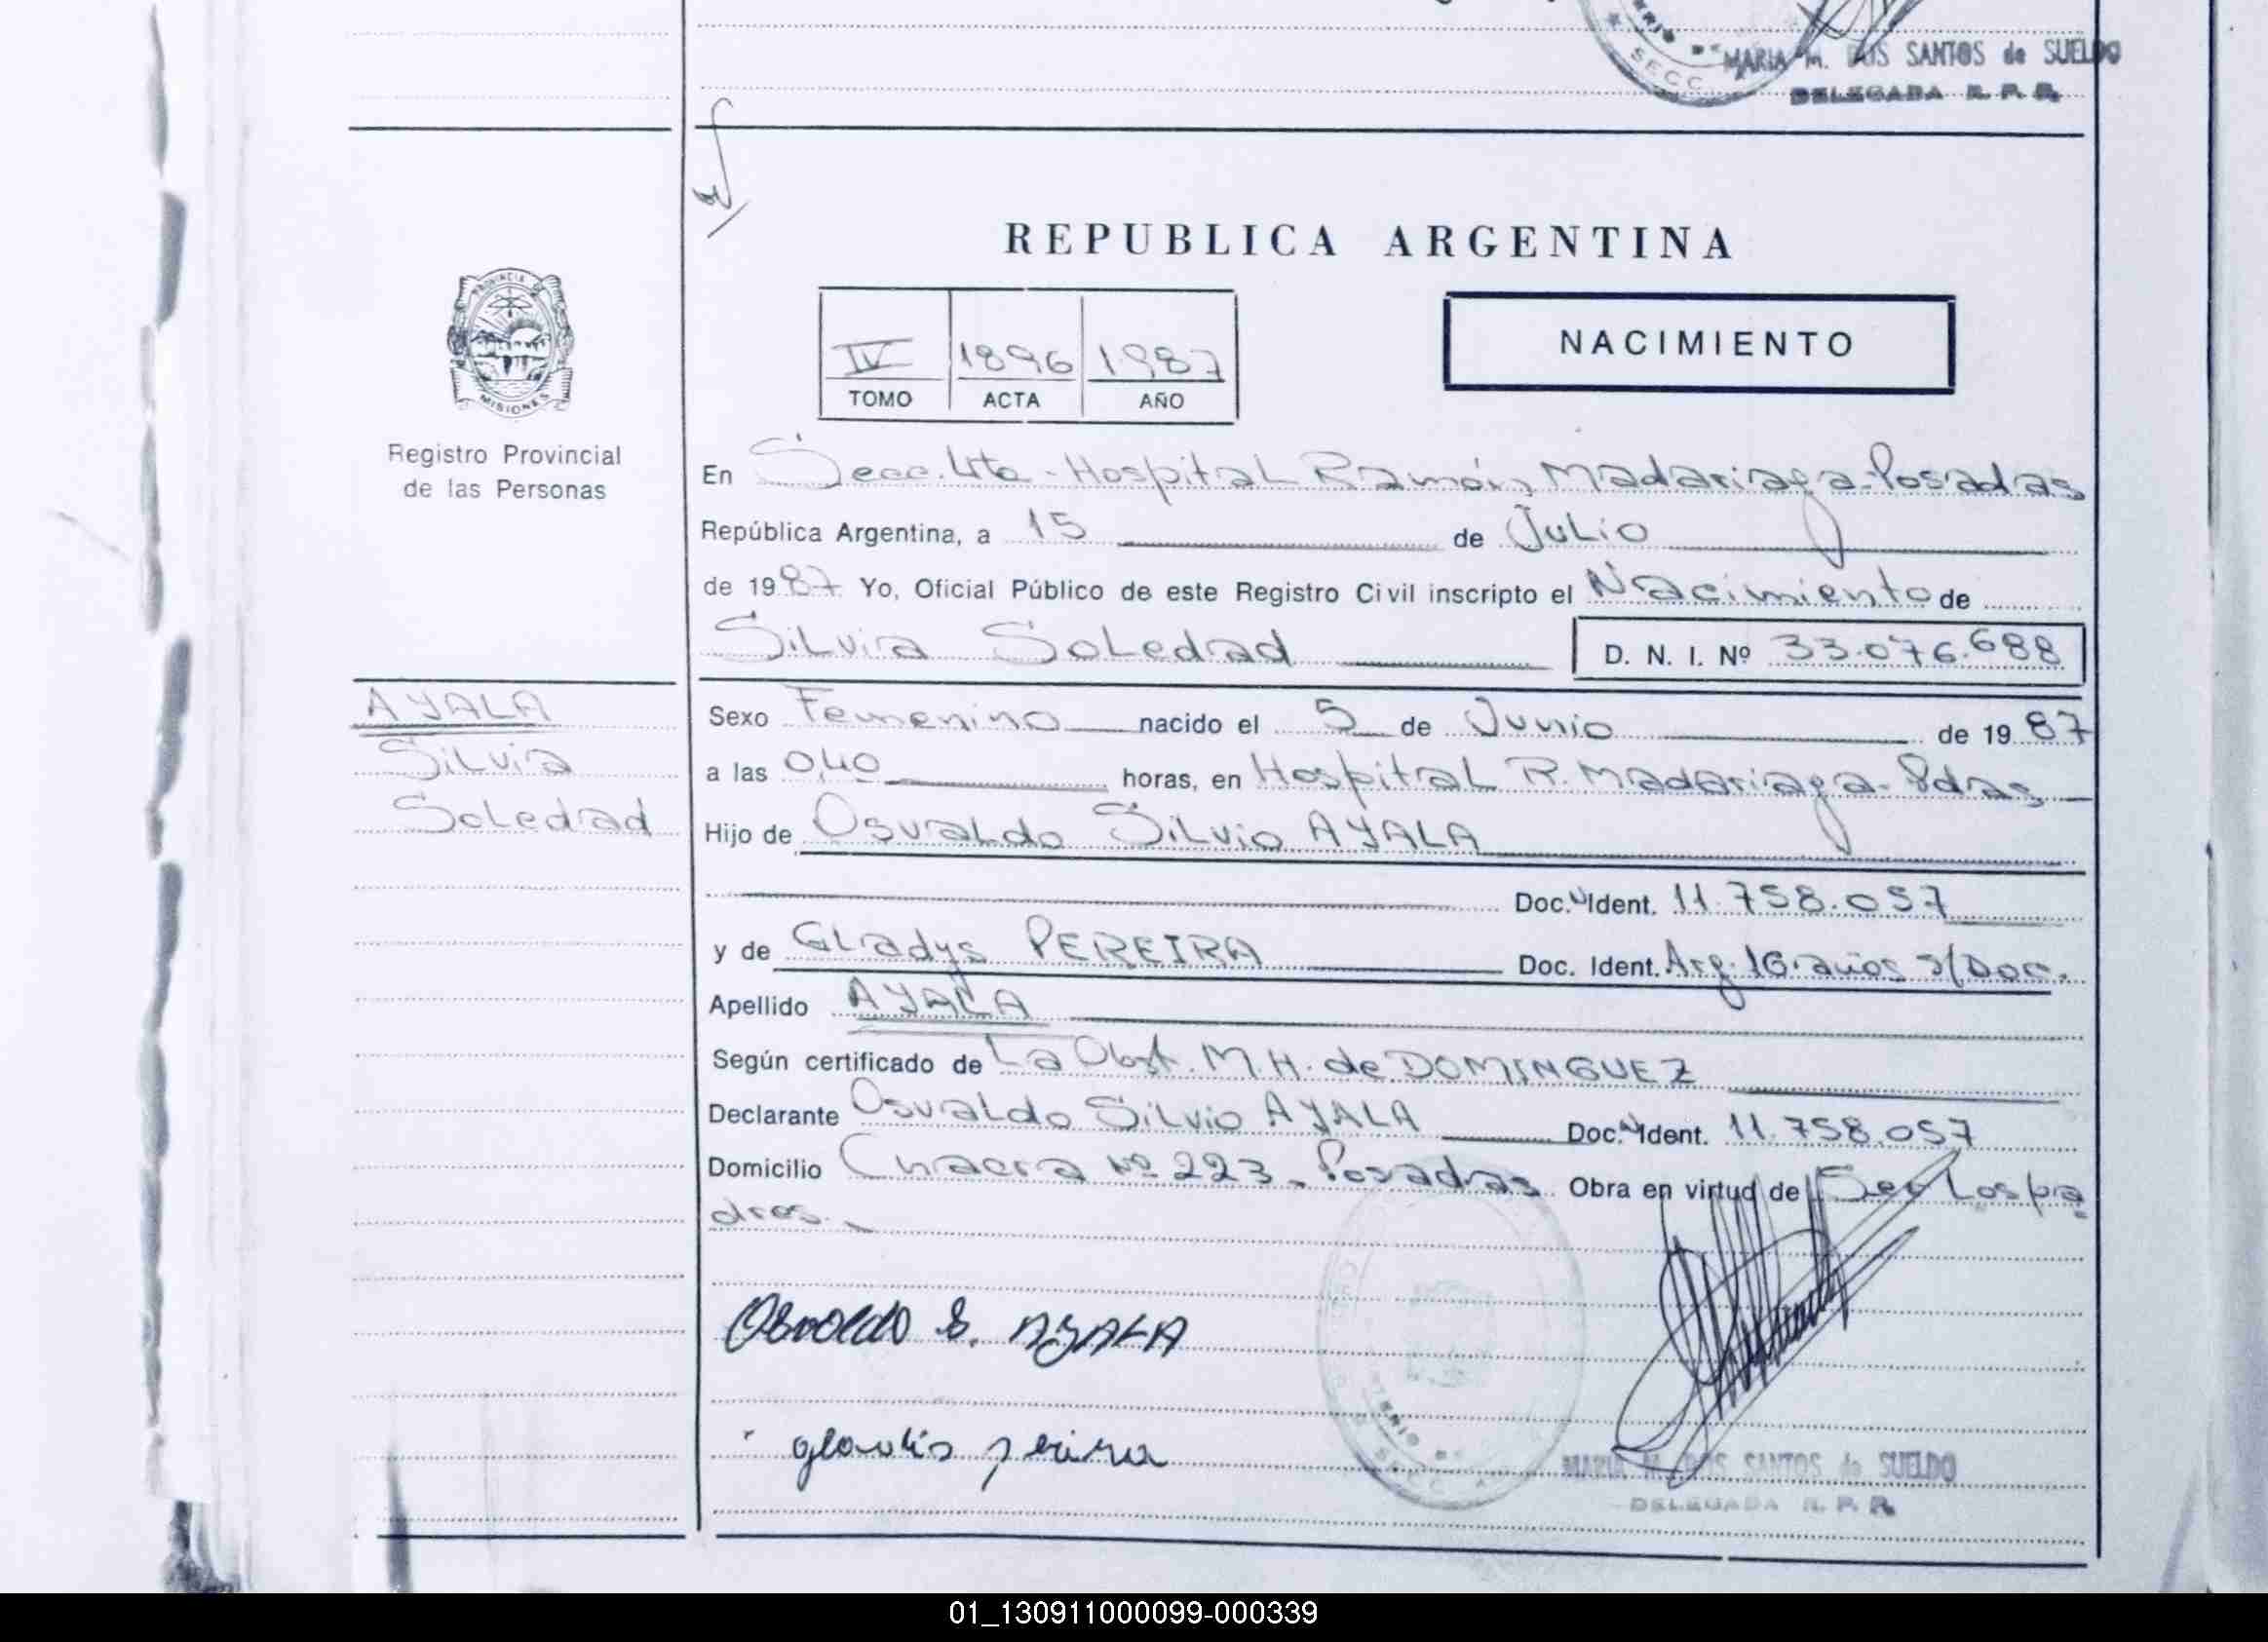 MARIA M. DOS SANTOS de SUELDO
SECC
DELEGADA R. P. R.
REPUBLICA ARGENTINA
PROVINCIA DE
MISIONES
Registro Provincial
de las Personas
IV 1896 1987
TOMO ACTA AÑO
NACIMIENTO
En Secc. 4ta - Hospital Ramón Madariaga - Posadas
República Argentina, a 15 de Julio
de 1987 Yo, Oficial Público de este Registro Civil inscripto el Nacimiento de
Silvia Soledad D. N. I. Nº 33.076.688
AYALA
Silvia
Soledad
Sexo Femenino nacido el 5 de Junio de 1987
a las 0,40 horas, en Hospital R. Madariaga - Pdas
Hijo de Osvaldo Silvio AYALA
Doc. Ident. 11.758.057
y de Gladys PEREIRA Doc. Ident. Arg. 16 años s/Doc.
Apellido AYALA
Según certificado de La Obst. M. H. de DOMINGUEZ
Declarante Osvaldo Silvio AYALA Doc. Ident. 11.758.057
Domicilio Chacra Nº 223 - Posadas Obra en virtud de Ser Los pa
dres.-
Osvaldo S. AYALA
MARIA M. DOS SANTOS de SUELDO
DELEGADA R. P. R.
01_130911000099-000339